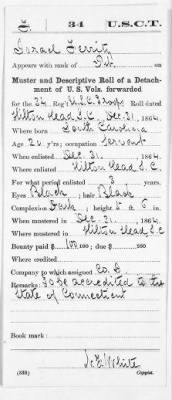 J | 34 | U.S.C.T.
Israel Ferrity
Appears with rank of Pvt. on
Muster and Descriptive Roll of a Detach-
ment of U. S. Vols. forwarded
for the 34 Reg't U.S.C. Troops Roll dated
Hilton Head S.C. Dec. 31, 1864.
Where born South Carolina
Age 20 y'rs; occupation Servant
When enlisted Dec. 31, 1864.
Where enlisted Hilton Head S.C.
For what period enlisted 3 years.
Eyes Black; hair Black
Complexion Dark; height 5 ft. 6 in.
When mustered in Dec. 31, 1864.
Where mustered in Hilton Head S.C.
Bounty paid $ 100/100; due $ /100
Where credited
Company to which assigned Co. D.
Remarks: To be accredited to the
State of Connecticut
Book mark:
White
(339) Copyist.